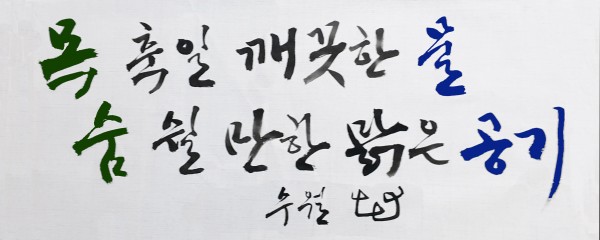 목 축일 깨끗한 물
숨 쉴 만한 맑은 공기
수월